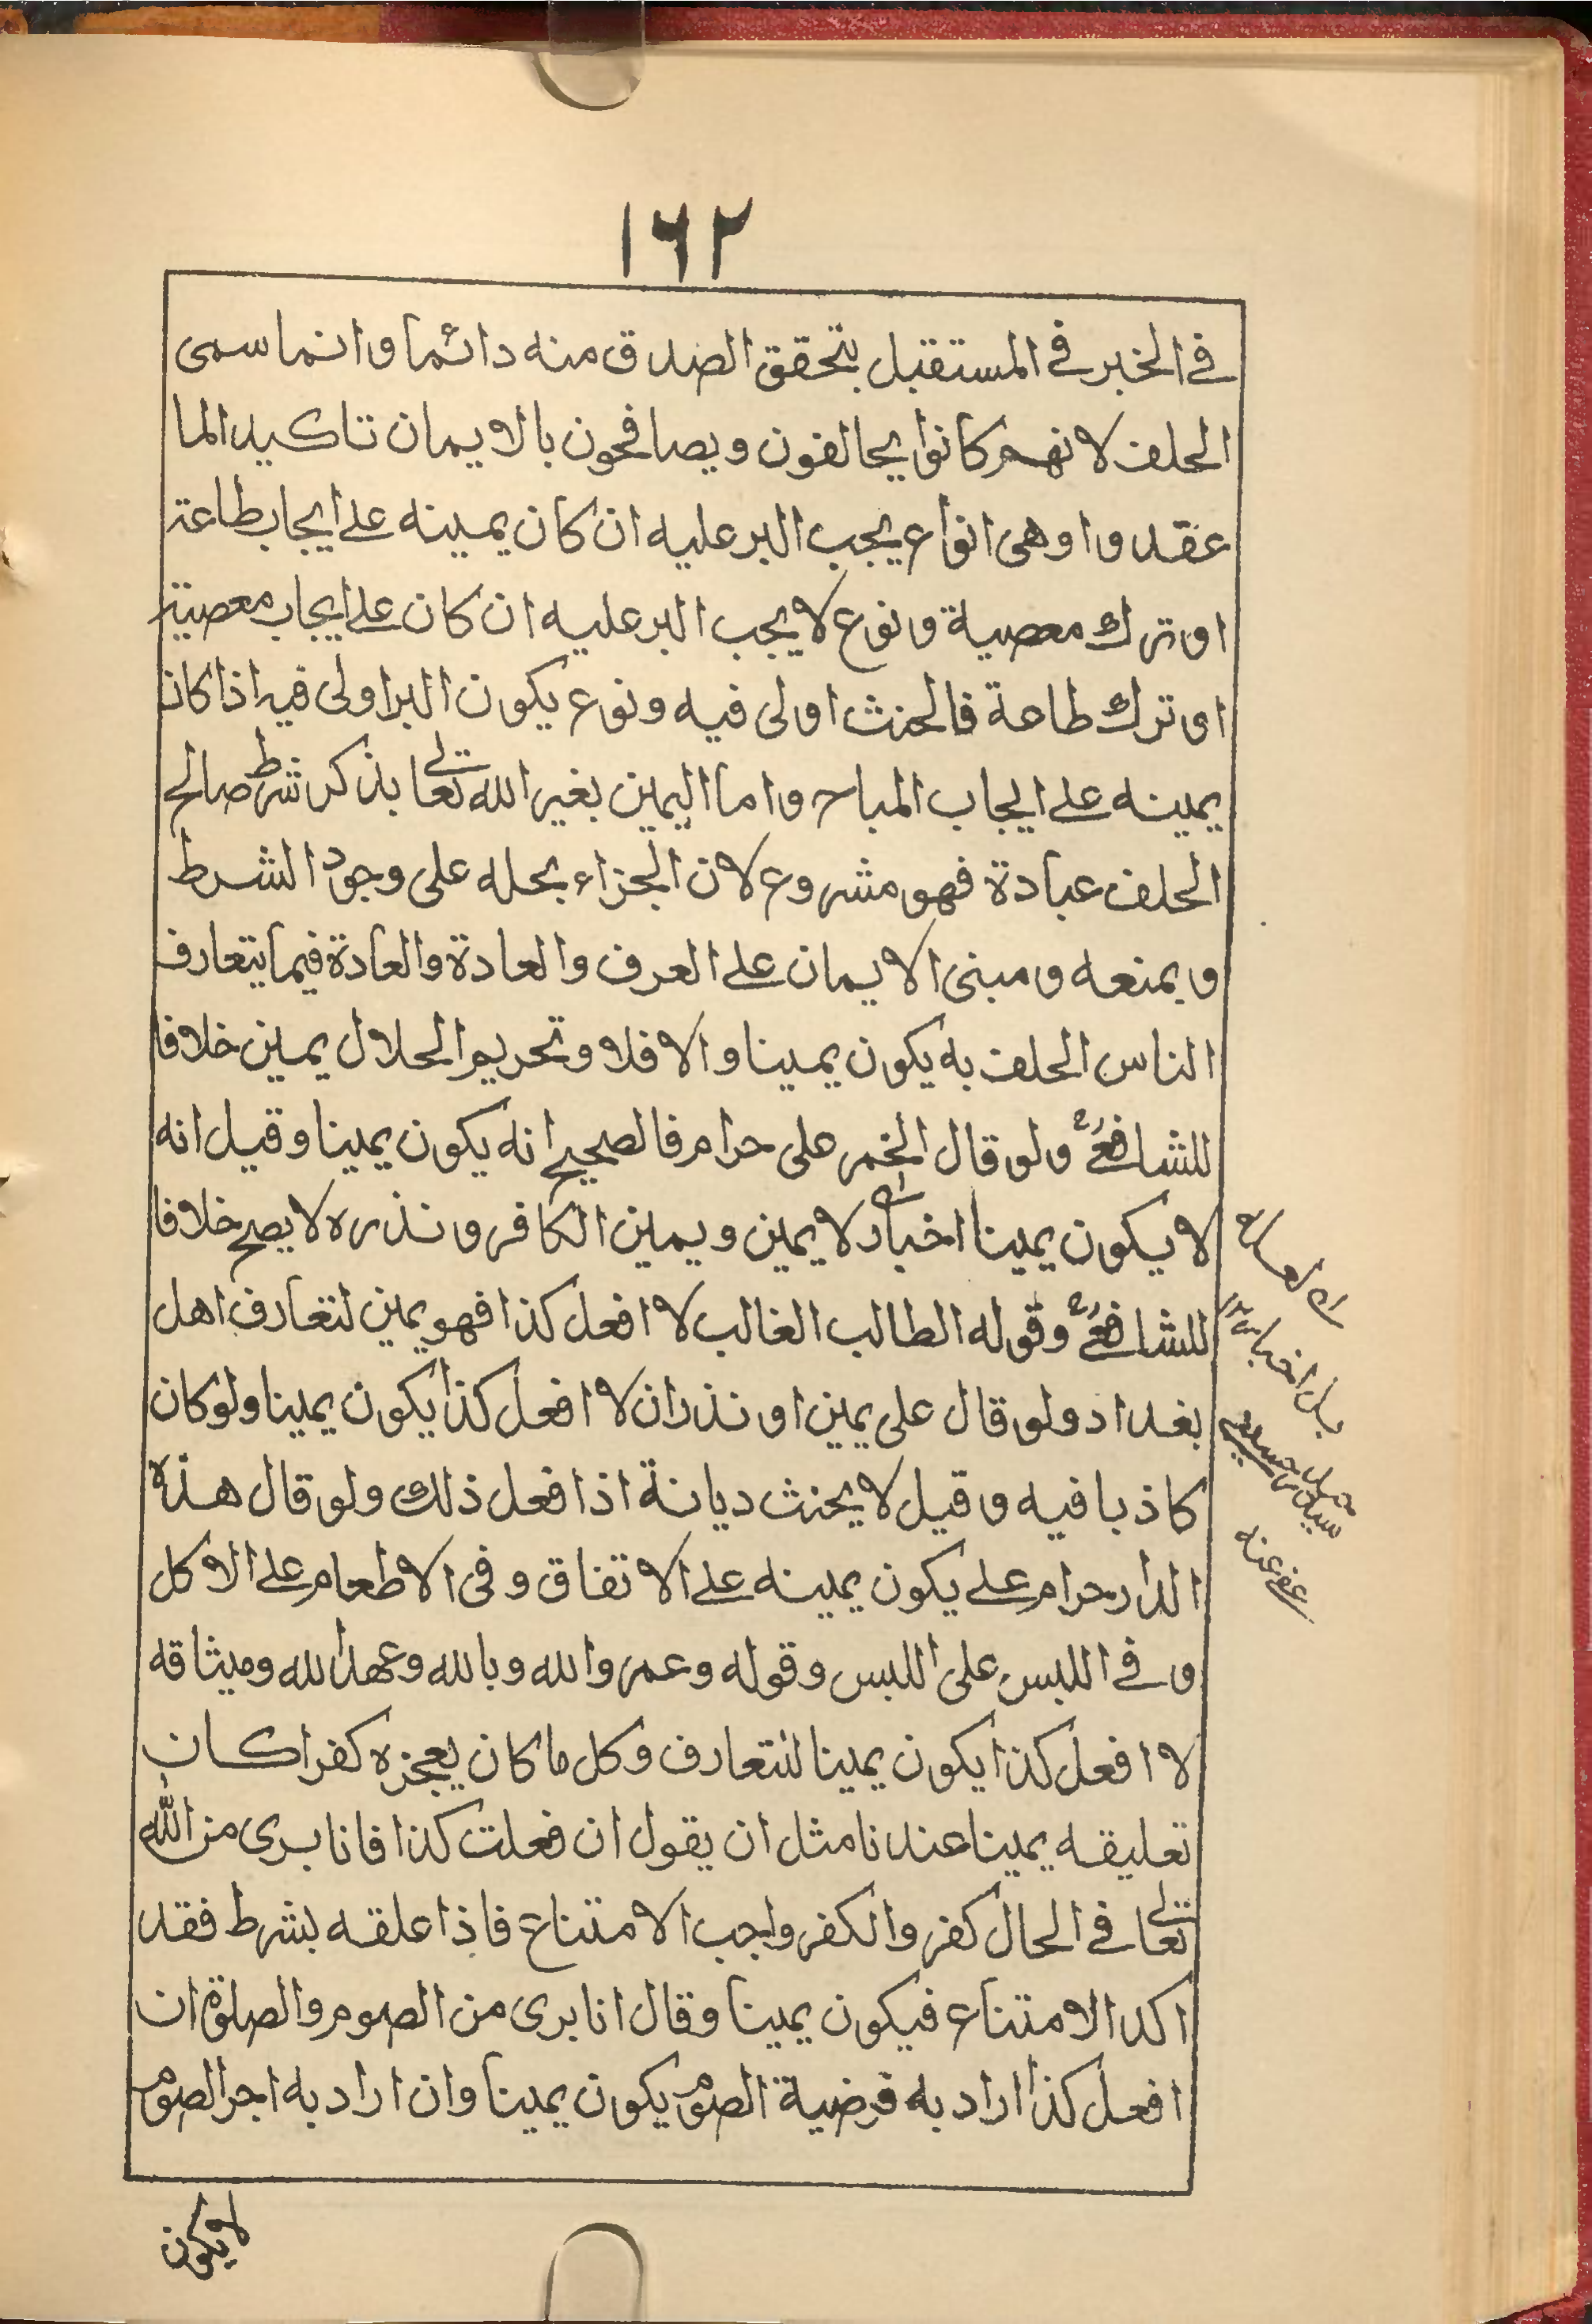 ١٦٢
في الخبر في المستقبل بتحقق الصدق منه دائما وانما سمى
الحلف لانهم كانوا يحالفون ويصافحون بالايمان تاكيدا لما
عقدوا وهى انواع يجب البر عليه ان كان يمينه على ايجاب طاعة
او ترك معصية ونوع لا يجب البر عليه ان كان على ايجاب معصية
او ترك طاعة فالحنث اولى فيه ونوع يكون البر اولى فيه اذا كان
يمينه على ايجاب المباح واما اليمين بغير الله تعالى بذكر شرط صالح
الحلف عبادة فهو مشروع لان الجزاء بحله على وجود الشرط
ويمنعه ومبنى الايمان على العرف والعادة والعادة فيما يتعارف
الناس الحلف به يكون يمينا والا فلا وتحريم الحلال يمين خلافا
للشافعي ولو قال الخمر على حرام فالصحيح انه يكون يمينا وقيل انه
لا يكون يمينا اخبار لا يمين ويمين الكافر ونذره لا يصح خلافا
للشافعي وقوله الطالب الغالب لا افعل كذا فهو يمين لتعارف اهل
بغداد ولو قال على يمين او نذر ان لا افعل كذا يكون يمينا ولو كان
كاذبا فيه وقيل لا يحنث ديانة اذا فعل ذلك ولو قال هذه
الدار حرام على يكون يمينه على الاتفاق وفى الاطعام على الاكل
وفي اللبس على اللبس وقوله وعمر والله وبالله وعهد الله وميثاقه
لا افعل كذا يكون يمينا لتعارف وكل ما كان يعجزه كفرا كان
تعليقه يمينا عندنا مثل ان يقول ان فعلت كذا فانا برى من الله
تعالى في الحال كفر والكفر واجب الامتناع فاذا علقه بشرط فقد
اكد الامتناع فيكون يمينا وقال انا برى من الصوم والصلوة ان
افعل كذا اراد به فرضية الصوم يكون يمينا وان اراد به اجر الصوم
لا يكون
بل اخبار
عفى عنه